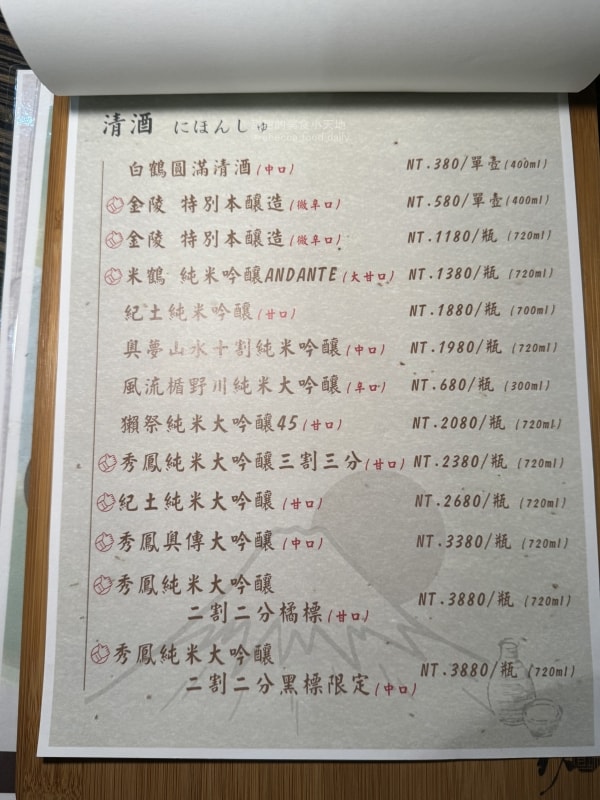 清酒 にほんしゅ
白鶴圓滿清酒(中口) NT.380/單壺(400ml)
金陵 特別本釀造(微辛口) NT.580/單壺(400ml)
金陵 特別本釀造(微辛口) NT.1180/瓶(720ml)
米鶴 純米吟釀ANDANTE(大甘口) NT.1380/瓶(720ml)
紀土純米吟釀(甘口) NT.1880/瓶(700ml)
奥夢山水十割純米吟釀(中口) NT.1980/瓶(720ml)
風流楯野川純米大吟釀(辛口) NT.680/瓶(300ml)
獺祭純米大吟釀45(甘口) NT.2080/瓶(720ml)
秀鳳純米大吟釀三割三分(甘口) NT.2380/瓶(720ml)
紀土純米大吟釀(甘口) NT.2680/瓶(720ml)
秀鳳奥傳大吟釀(中口) NT.3380/瓶(720ml)
秀鳳純米大吟釀
二割二分橘標(甘口) NT.3880/瓶(720ml)
秀鳳純米大吟釀
二割二分黑標限定(中口) NT.3880/瓶(720ml)